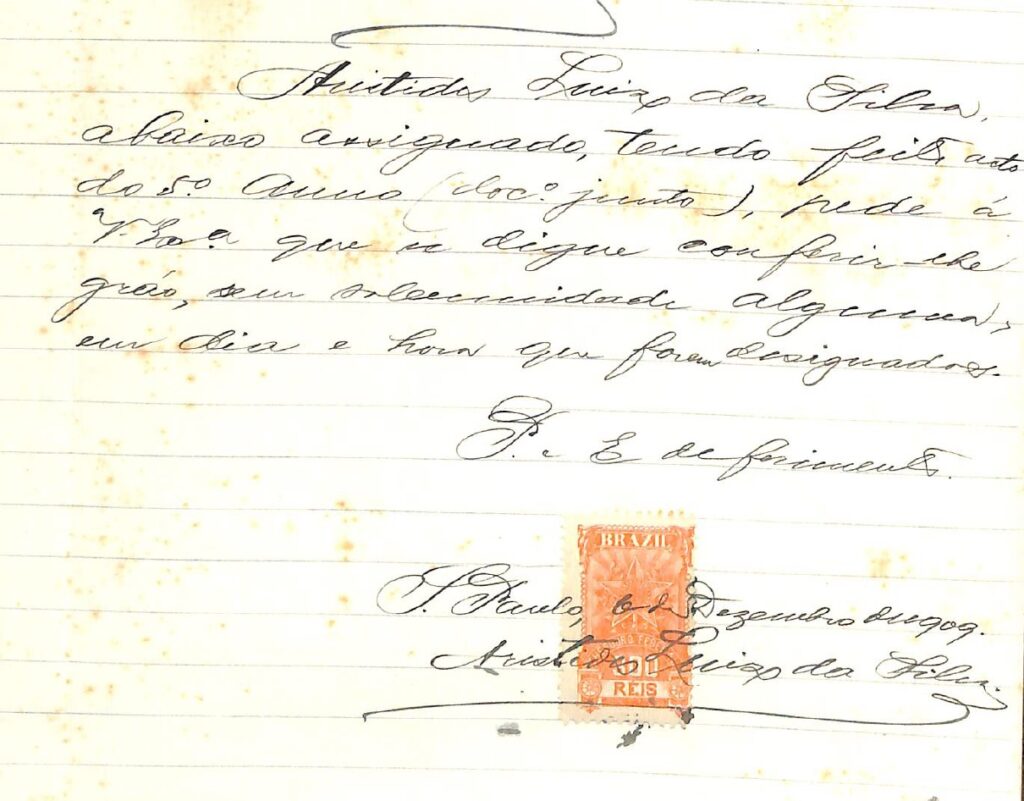 Aristides Luiz da Silva,
abaixo assignado, tendo feito acto
do 5º Anno (doc.º junto), pede á
V. Exª. que se digne conferir-lhe
gráo, sem solemnidade alguma,
em dia e hora que forem designados.
P. e E deferimento.
BRAZIL
S. Paulo, 6 de Dezembro de 1909.
Aristides Luiz da Silva.
RÉIS